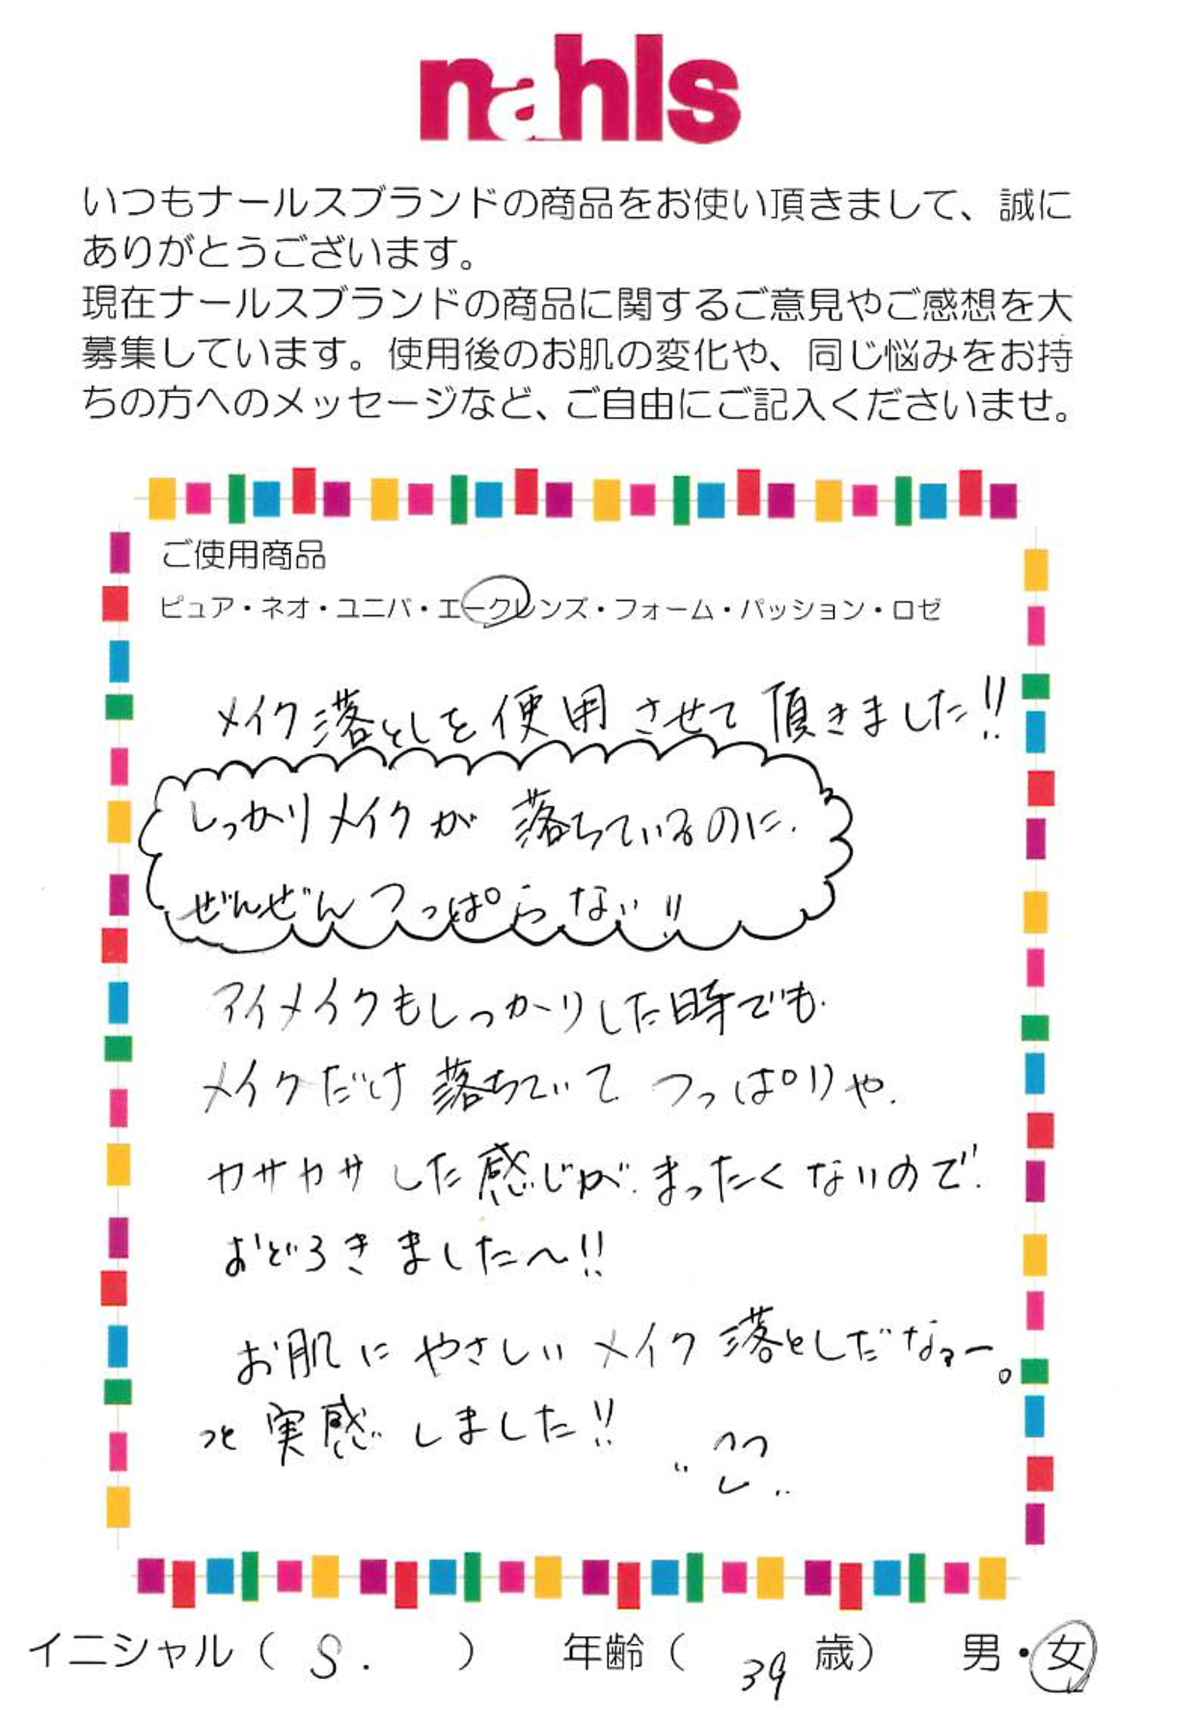 nahls
いつもナールスブランドの商品をお使い頂きまして、誠に
ありがとうございます。
現在ナールスブランドの商品に関するご意見やご感想を大
募集しています。使用後のお肌の変化や、同じ悩みをお持
ちの方へのメッセージなど、ご自由にご記入くださいませ。
ご使用商品
ピュア・ネオ・ユニバ・エークレンズ・フォーム・パッション・ロゼ
メイク落としを使用させて頂きました!!
しっかりメイクが落ちているのに、
ぜんぜんつっぱらない!!
アイメイクもしっかりした時でも、
メイクだけ落ちていてつっぱりや、
カサカサした感じが、まったくないので、
おどろきました〜!!
お肌にやさしいメイク落としだなぁー。
っと実感しました!!
イニシャル( S. ) 年齢( 39 歳) 男・女